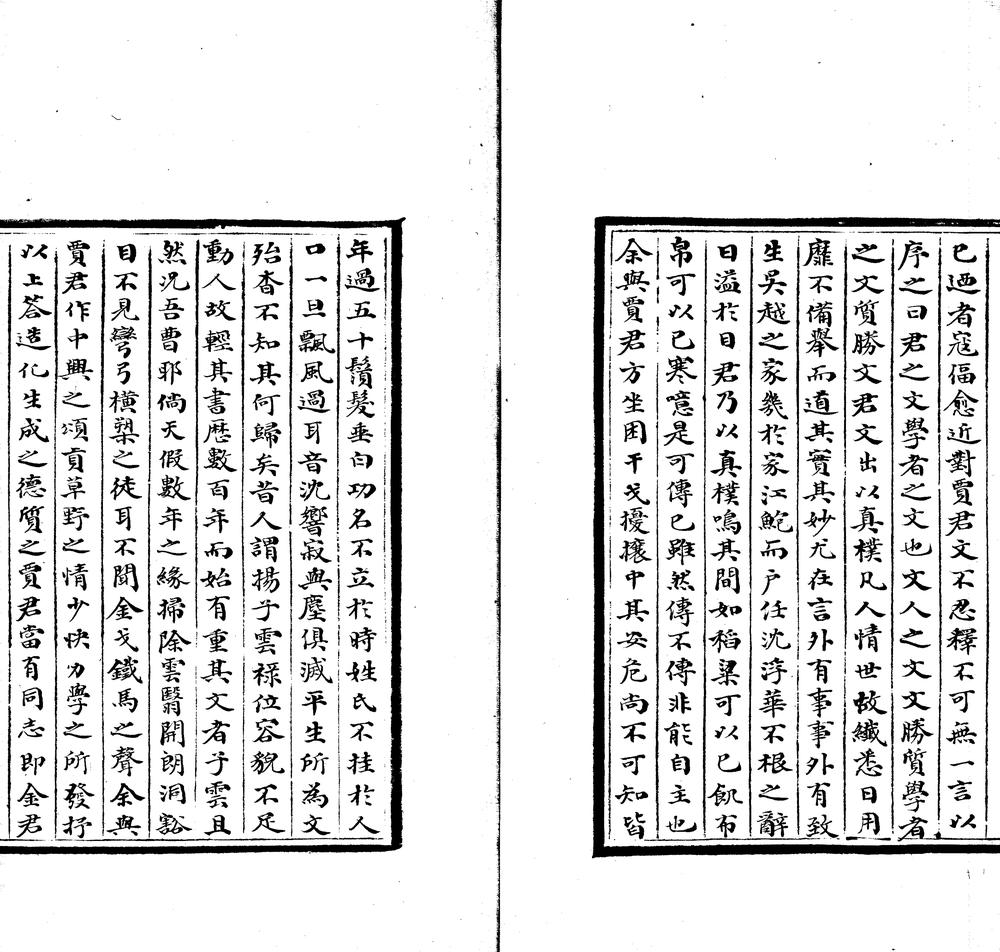 已迺者寇偪愈近對賈君文不忍釋不可無一言以
序之曰君之文學者之文也文人之文文勝質學者
之文質勝文君文出以真樸凡人情世故纖悉日用
靡不備舉而道其實其妙尤在言外有事事外有致
生吳越之家幾於家江鮑而户任沈浮華不根之辭
日溢於目君乃以真樸鳴其間如稻粱可以已飢布
帛可以已寒噫是可傳已雖然傳不傳非能自主也
余與賈君方坐困干戈擾攘中其安危尚不可知皆
年過五十鬚髮垂白功名不立於時姓氏不挂於人
口一旦飄風過耳音沈響寂與塵俱滅平生所為文
殆杳不知其何歸矣昔人謂揚子雲祿位容貌不足
動人故輕其書歷數百年而始有重其文者子雲且
然况吾曹耶倘天假數年之緣掃除雲翳開朗洞豁
目不見彎弓橫槊之徒耳不聞金戈鐵馬之聲余與
賈君作中興之頌貢草野之情少快力學之所發抒
以上答造化生成之德質之賈君當有同志即金君